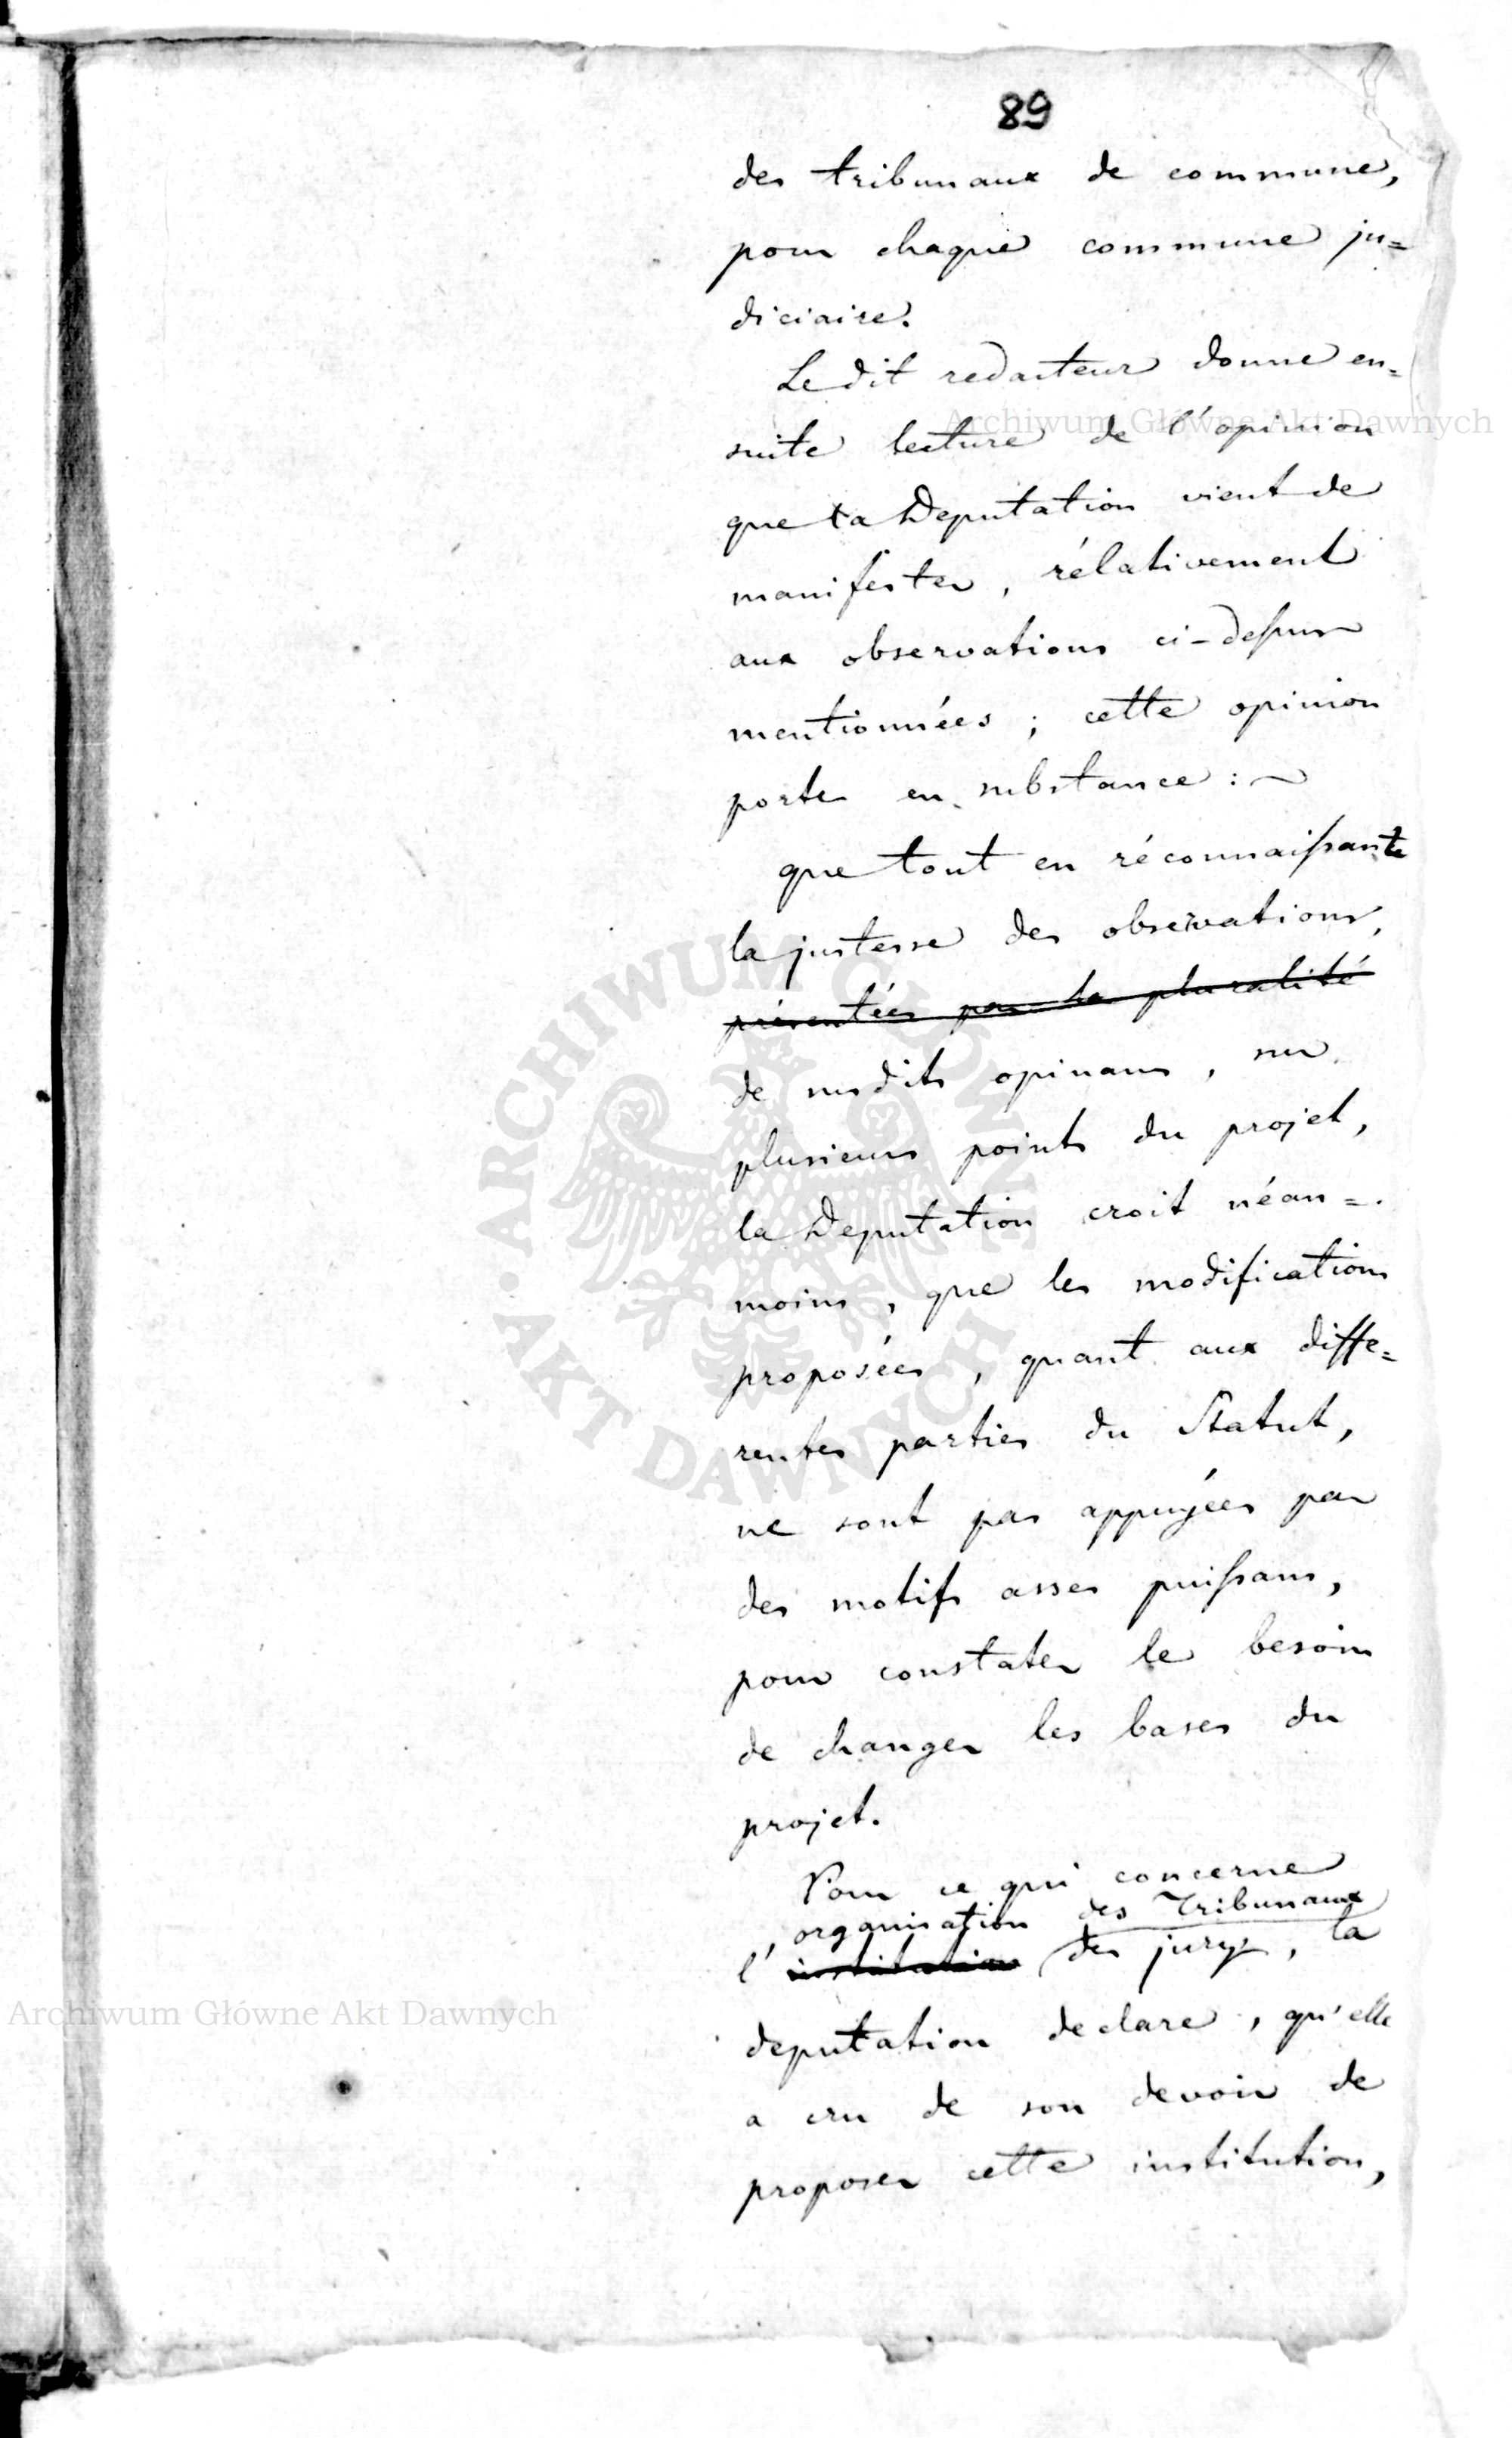 89
des tribunaux de commune,
pour chaque commune ju=
diciaire.
Le dit redacteur donne en=
suite lecture de l'opinion
que la Deputation vient de
manifester, rélativement
aux observations ci-dessus
mentionnées; cette opinion
porte en substance:
que tout en réconnaissante
la justesse des observations,
présentées par la pluralité
de susdits opinans, sur
plusieurs points du projet,
la Deputation croit néan=
moins, que les modifications
proposées, quant aux diffe=
rentes parties du Statut,
ne sont pas appuyées par
des motifs asses puissans,
pour constater le besoin
de changer les bases du
projet.
Pour ce qui concerne
organisation des Tribunaux
l'institution des jurys, la
deputation declare, qu'elle
a cru de son devoir de
proposer cette institution,
Archiwum Główne Akt Dawnych
Archiwum Główne Akt Dawnych
ARCHIWUM GŁÓWNE
AKT DAWNYCH